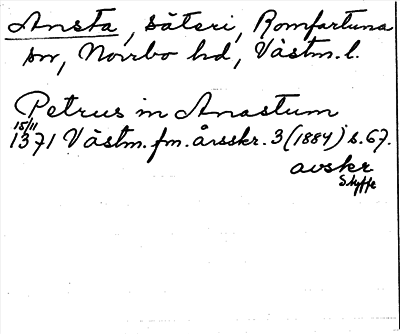 Ansta, säteri, Romfartuna
sn, Norrbo hd, Västm. l.
Petrus in Anastum
15/11
1371 Västm. fm. årsskr. 3 (1884) s. 67.
avskr
Styffe